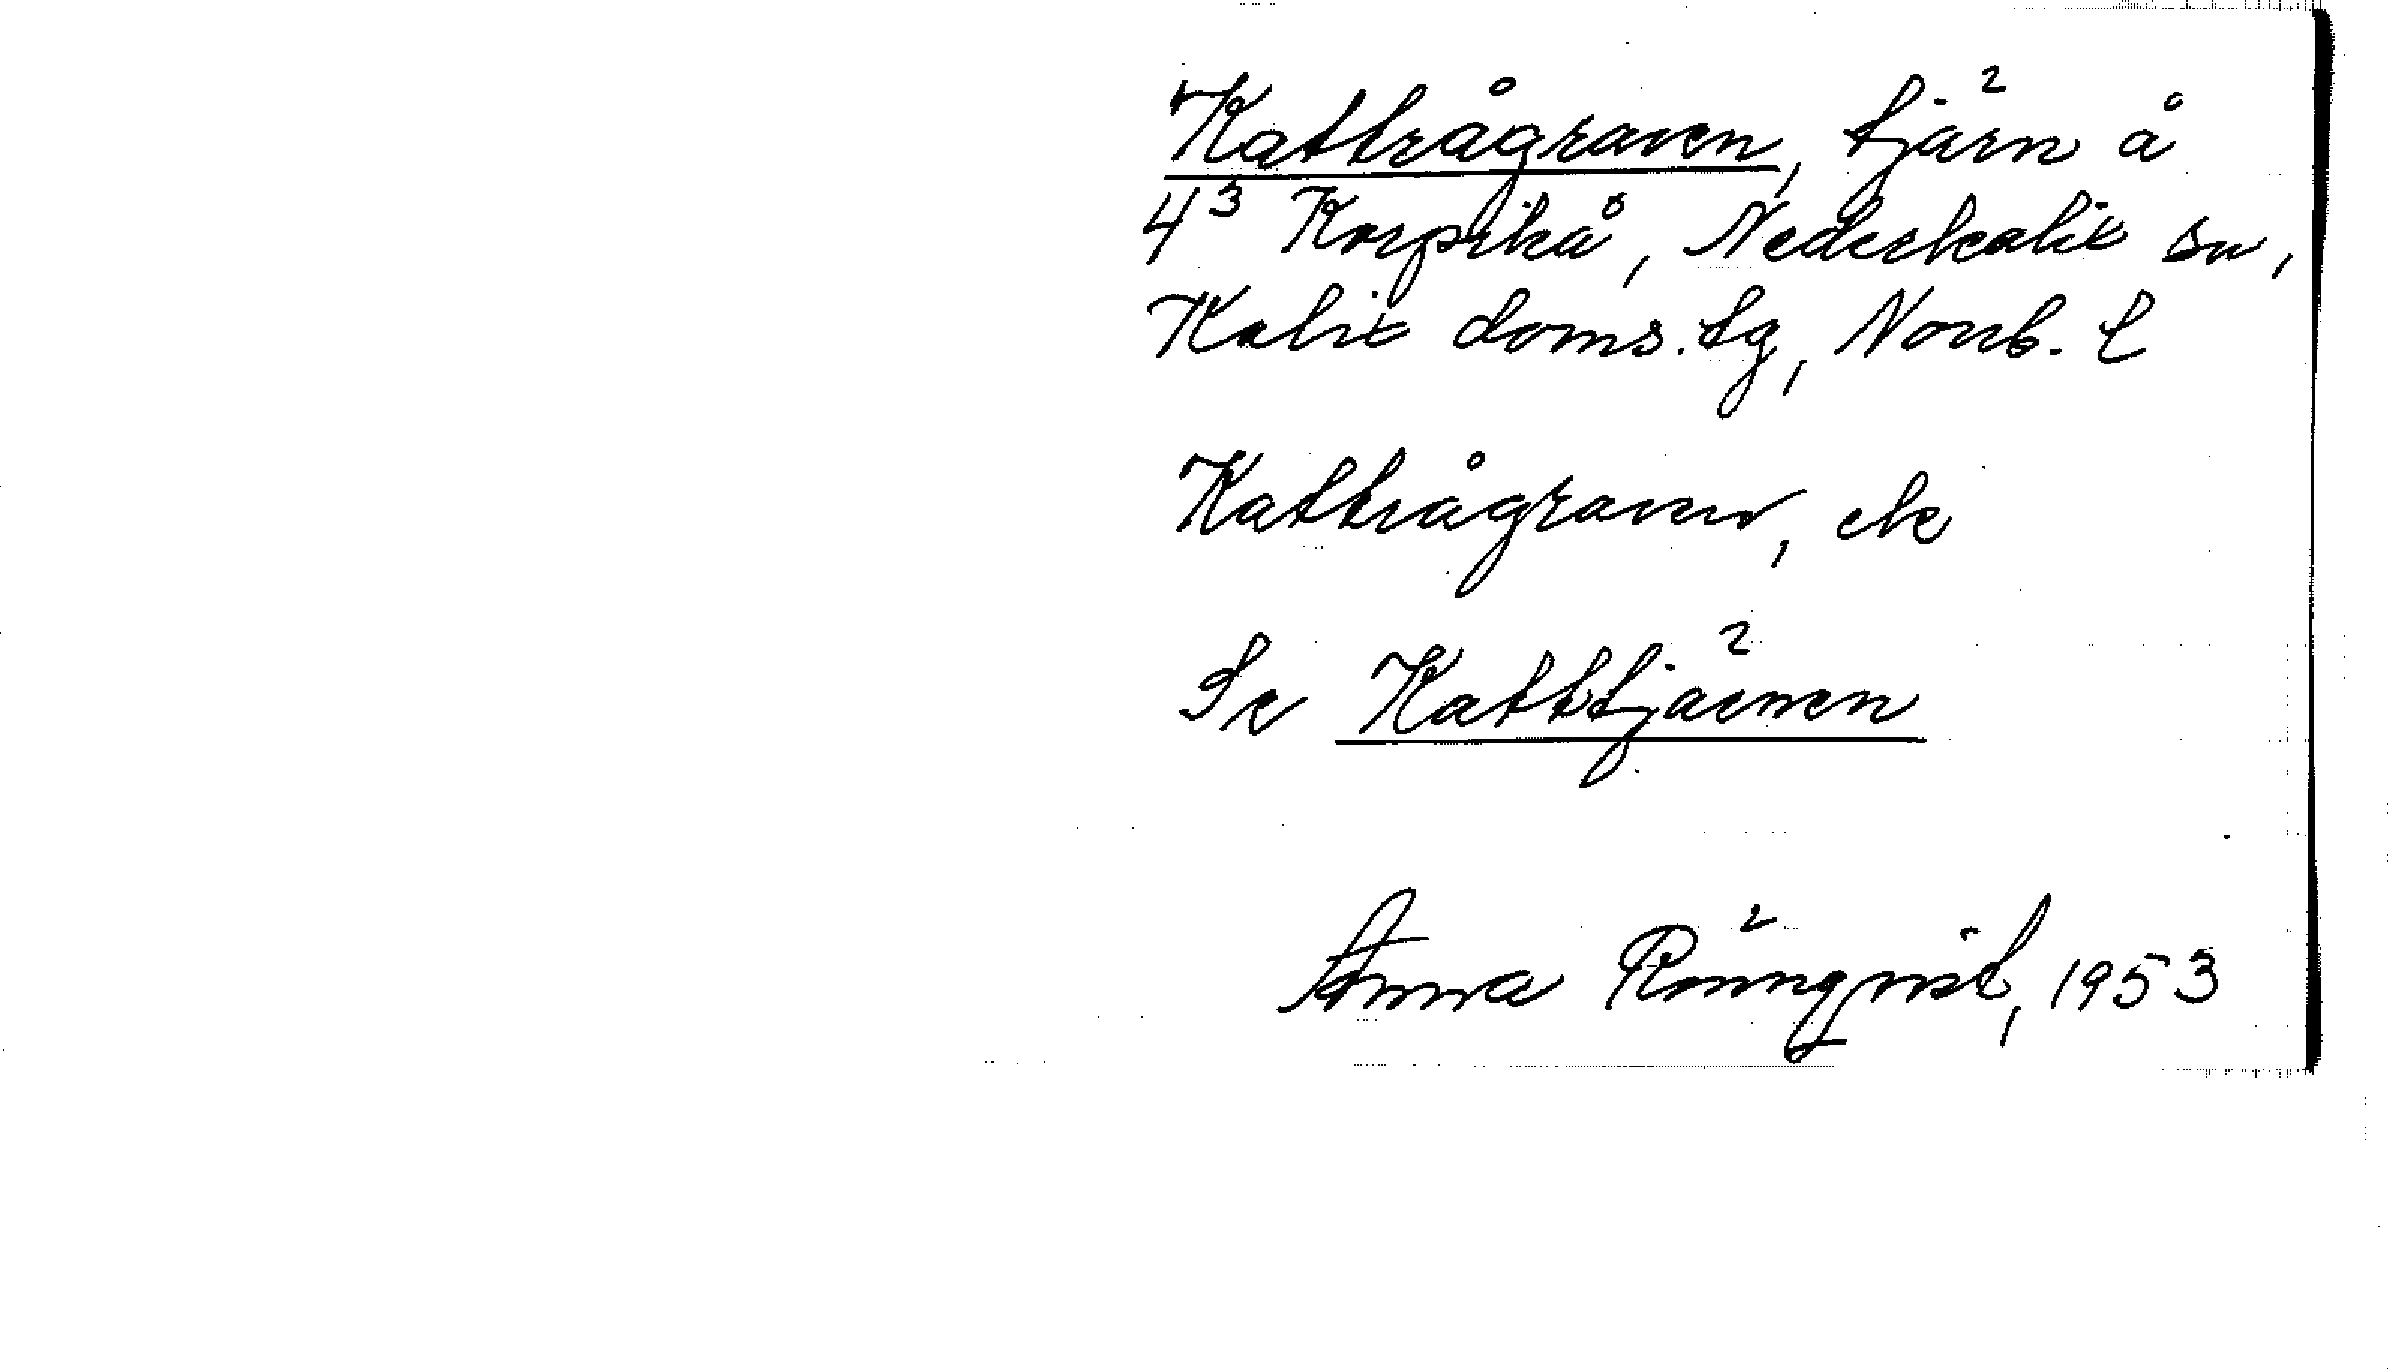 Katthågraven, tjärn å
4³ Korpikå, Nederkalix sn,
Kalix doms.sg, Norrb. l
Katthågraven, ek
Se Katttjärnen
Anna Rönnqvist, 1953